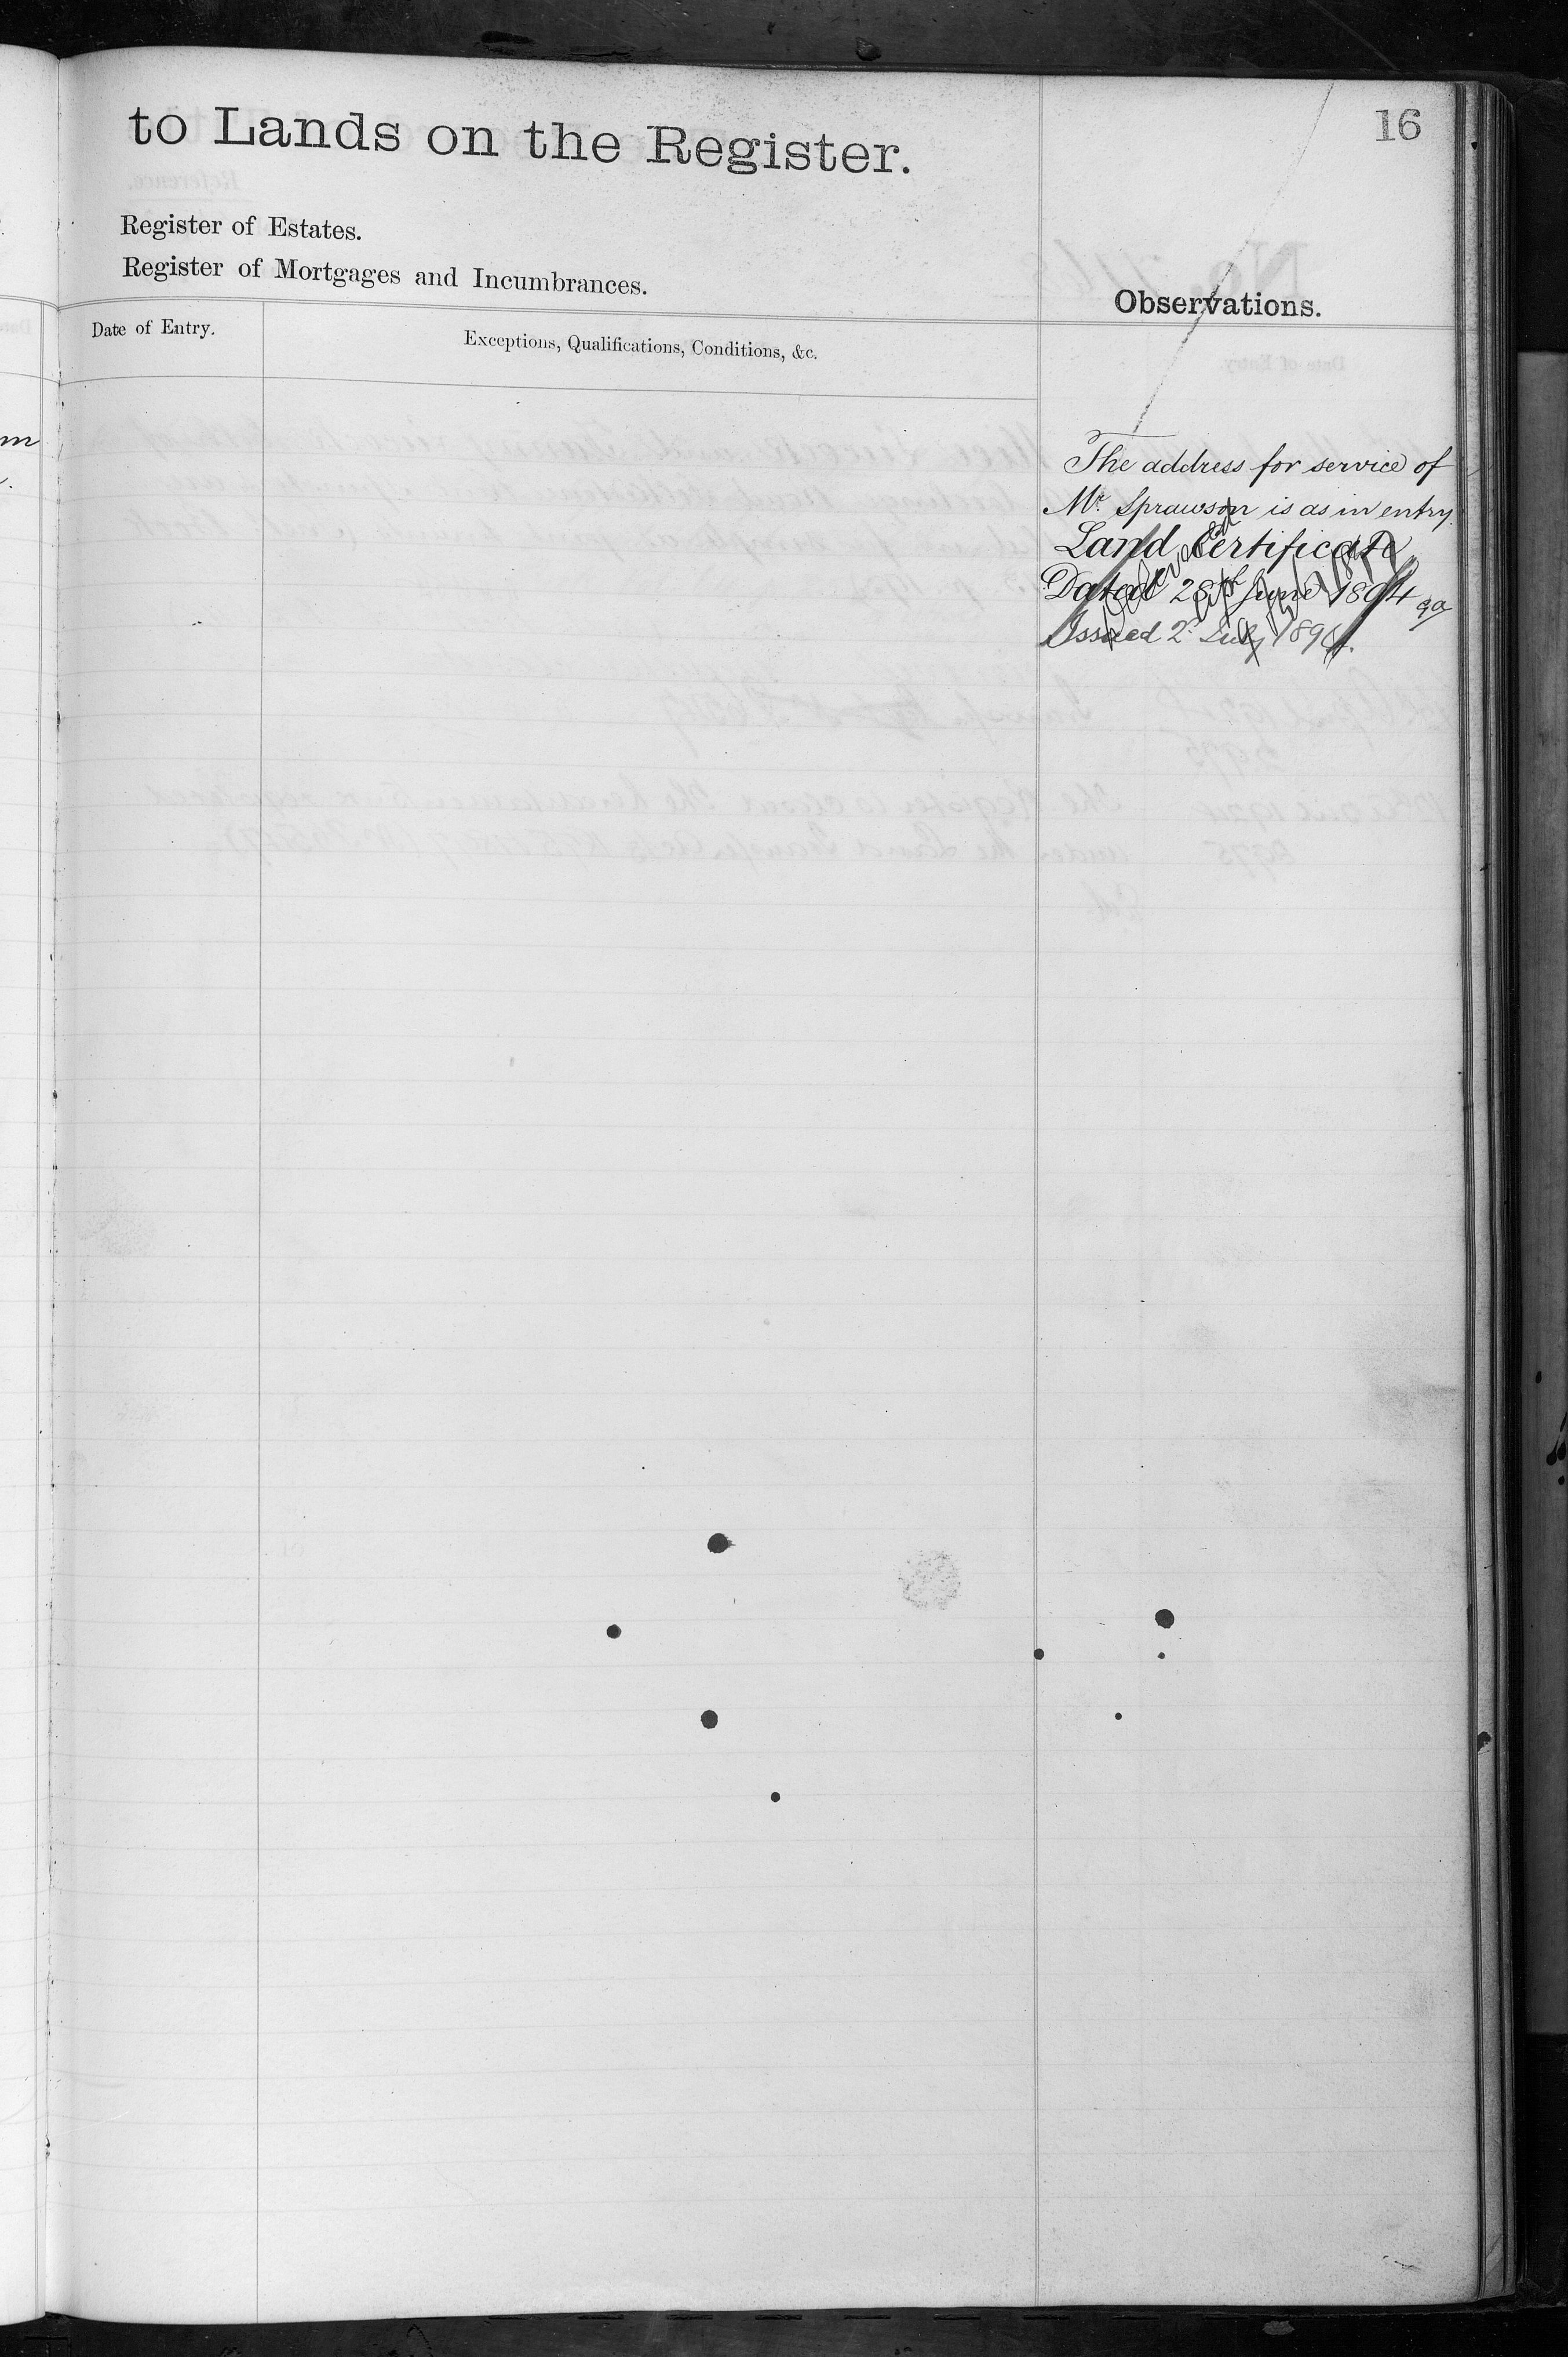 to Lands on the Register.
16
Register of Estates.
Register of Mortgages and Incumbrances.
Observations.
Date of Entry.
Exceptions, Qualifications, Conditions, &c.
The address for service of
Mr. Sprawson is as in entry.
Land Certificate
Dated 28th June 1894
Issued 2d July 1894.